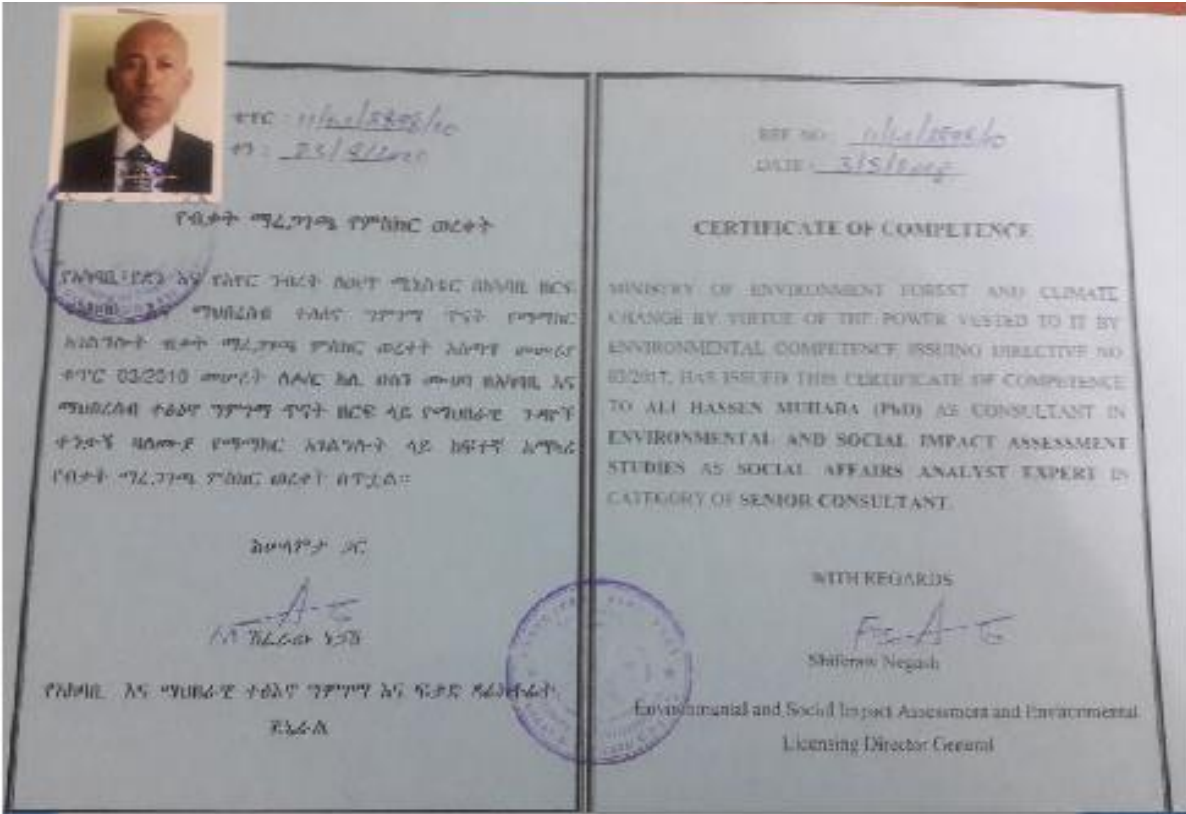 ቁጥር :
ቀን :
የብቃት ማረጋገጫ የምስክር ወረቀት
የአካባቢ የደን እና የአየር ንብረት ለውጥ ሚኒስቴር በአካባቢ ዘርፍ
እና ማህበረሰብ ተፅእኖ ግምገማ ጥናት የማማከር
አገልግሎት ብቃት ማረጋገጫ ምስክር ወረቀት አሰጣጥ መመሪያ
ቁጥር 03/2010 መሠረት ለዶ/ር አሊ ሀሰን ሙሀባ በአካባቢ እና
ማህበረሰብ ተፅዕኖ ግምገማ ጥናት ዘርፍ ላይ የማህበራዊ ጉዳዮች
ተንታኝ ባለሙያ የማማከር አገልግሎት ላይ ከፍተኛ አማካሪ
የብቃት ማረጋገጫ ምስክር ወረቀት ሰጥቷል።
ከሠላምታ ጋር
ሽፈራው ነጋሽ
የአካባቢ እና ማህበራዊ ተፅእኖ ግምገማ እና ፍቃድ ዳይሬክቶሬት
ጄኔራል
REF NO:
DATE:
CERTIFICATE OF COMPETENCE
MINISTRY OF ENVIRONMENT FOREST AND CLIMATE
CHANGE BY VIRTUE OF THE POWER VESTED TO IT BY
ENVIRONMENTAL COMPETENCE ISSUING DIRECTIVE NO
03/2017, HAS ISSUED THIS CERTIFICATE OF COMPETENCE
TO ALI HASSEN MUHABA (PhD) AS CONSULTANT IN
ENVIRONMENTAL AND SOCIAL IMPACT ASSESSMENT
STUDIES AS SOCIAL AFFAIRS ANALYST EXPERT IN
CATEGORY OF SENIOR CONSULTANT.
WITH REGARDS
Shiferaw Negash
Environmental and Social Impact Assessment and Environmental
Licensing Director General